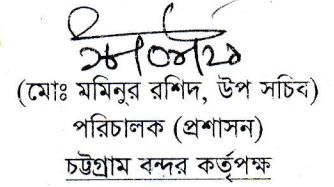 (মোঃ মমিনুর রশিদ, উপ সচিব)
পরিচালক (প্রশাসন)
চট্টগ্রাম বন্দর কর্তৃপক্ষ